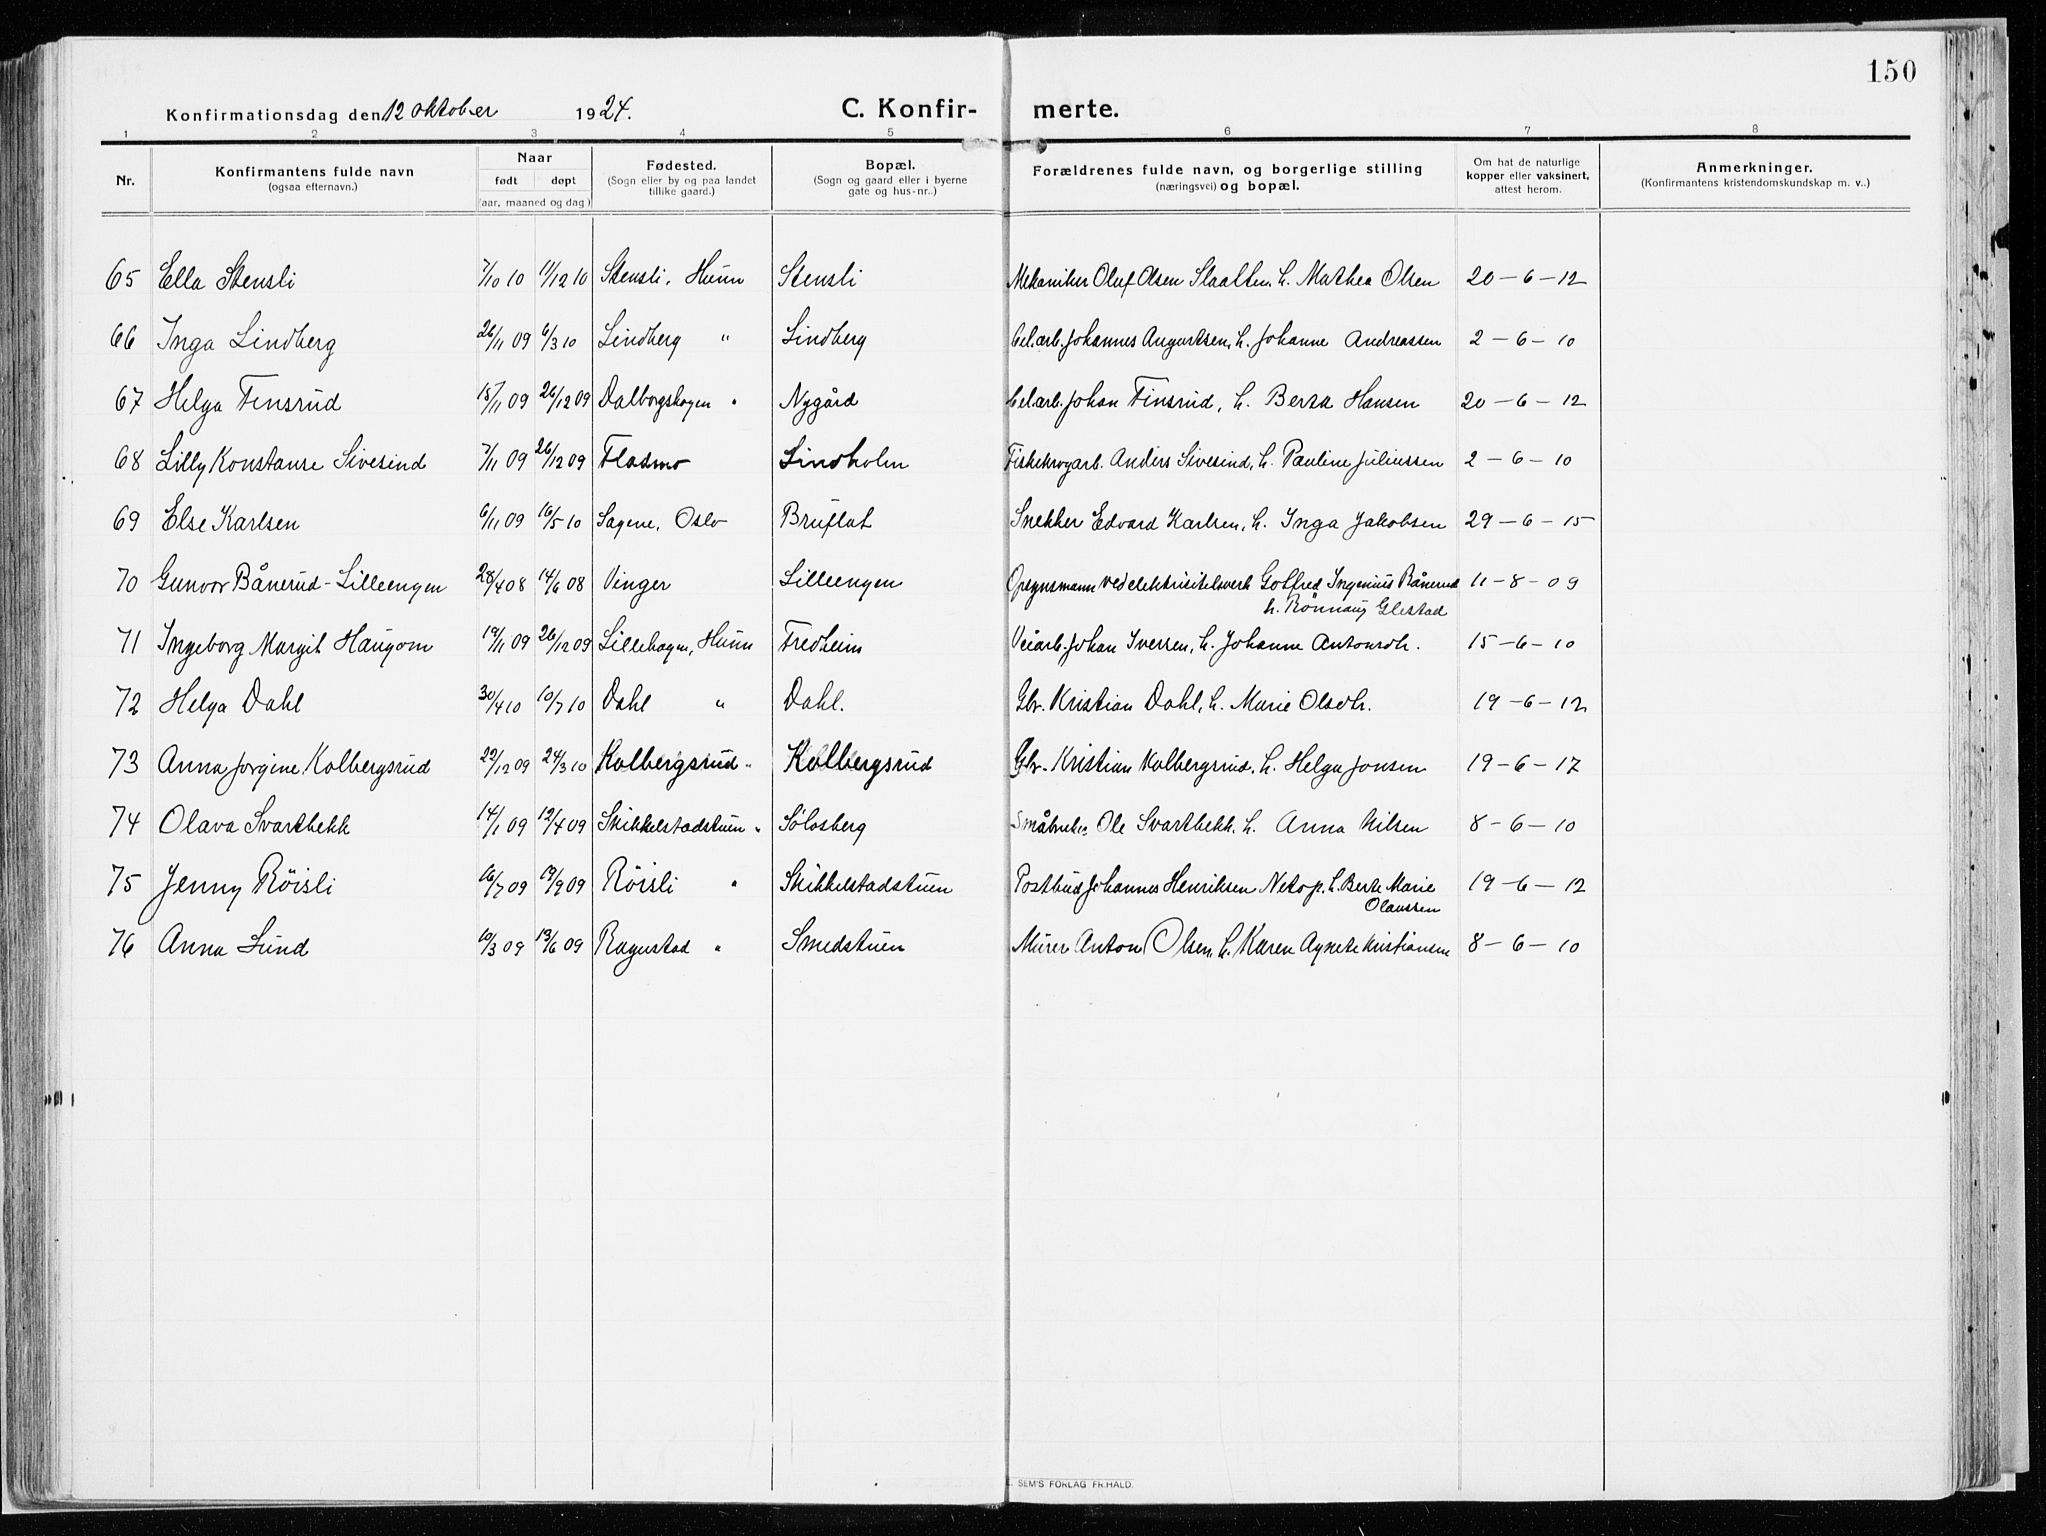 150
Konfirmationsdag den 12 oktober 1924. C. Konfir- merte.
1 2 3 4 5 6 7 8
Nr. Konfirmantens fulde navn (ogsaa efternavn.) Naar født døpt (aar, maaned og dag) Fødested. (Sogn eller by og paa landet tillike gaard.) Bopæl. (Sogn og gaard eller i byerne gate og hus-nr..) Forældrenes fulde navn, og borgerlige stilling (næringsvei) og bopæl. Om hat de naturlige kopper eller vaksinert, attest herom. Anmerkninger. (Konfirmantens kristendomskundskap m. v..)
65 Ella Stensli 7/10 10 11/12 10 Stensli, Hunn Stensli Mekaniker Oluf Olsen Slaatten, h. Mathea Olsen 20-6-12
66 Inga Lindberg 26/11 09 6/3 10 Lindberg " Lindberg Cel.arb. Johannes Augustsen, h. Johanne Andreassen 2-6-10
67 Helga Finsrud 15/11 09 26/12 09 Dalborgshagen " Nygård Cel.arb. Johan Finsrud, h. Berta Hansen 20-6-12
68 Lilly Konstanse Sivesind 7/11 09 26/12 09 Fladmo Lindholm Fiskekrogarb. Anders Sivesind, h. Pauline Juliussen 2-6-10
69 Else Karlsen 6/11 09 16/5 10 Sagene, Oslo Bruflat Snekker Edvard Karlsen, h. Inga Jakobsen 29-6-15
70 Gunvor Bånerud-Lilleengen 28/4 08 14/6 08 Vinger Lilleengen Opsynsmann ved elektrisitetsverk Gotfred Ingenius Bånerud 11-8-09
h. Rønnaug Glestad
71 Ingeborg Margit Haugom 19/11 09 26/12 09 Lillehagen, Hunn Fredheim Veiarb. Johan Iversen, h. Johanne Antonsdtr. 15-6-10
72 Helga Dahl 30/4 10 10/7 10 Dahl " Dahl. Gbr. Kristian Dahl, h. Marie Olsdtr. 19-6-12
73 Anna Jorgine Kolbergsrud 22/12 09 24/3 10 Kolbergsrud " Kolbergsrud Gbr. Kristian Kolbergsrud, h. Helga Jonsen 19-6-17
74 Olava Svartbekk 14/1 09 12/4 09 Skikkelstadstuen " Solosberg Småbruker Ole Svartbekk, h. Anna Nilsen 8-6-10
75 Jenny Røisli 16/7 09 19/9 09 Røisli " Skikkelstadstuen Postbud Johannes Henriksen Netop, h. Berte Marie 19-6-12
Olaussen
76 Anna Lund 10/3 09 13/6 09 Ragnstad " Smedstuen Murer Anton Olsen, h. Karen Agnete Kristiansen 8-6-10
SEM'S FORLAG FR.HALD.